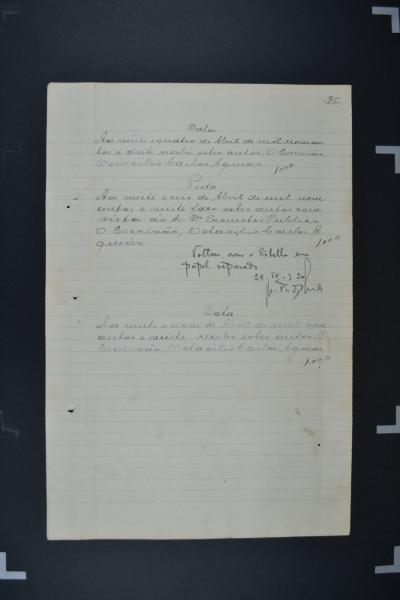 Data
Aos vinte e quatro de Abril de mil novecen
tos e vinte recebi estes autos. O Escrivão,
Octacilio Carlos Aguiar
1000
Vista
Aos vinte e seis de Abril de mil nove
centos e vinte faço estes autos com
vista ao Sr. Dr. Promotor Publico.
O Escrivão, Octacilio Carlos A-
guiar
1000
Voltam com o libello em
papel separado
28. IV. 920
Data
Aos vinte e nove de Abril de mil nove
centos e vinte recebi estes autos. O
Escrivão, Octacilio Carlos Aguiar
1000